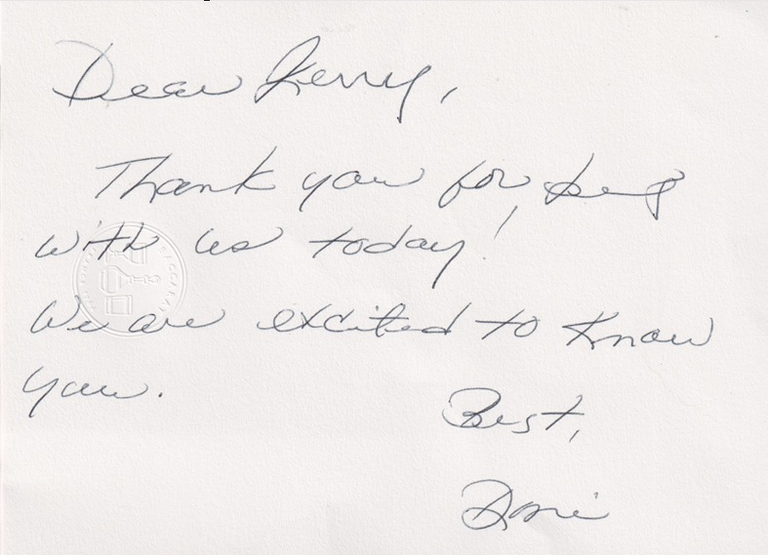 Dear Kerry,
Thank you for being
with us today!
We are excited to know
you.
Best,